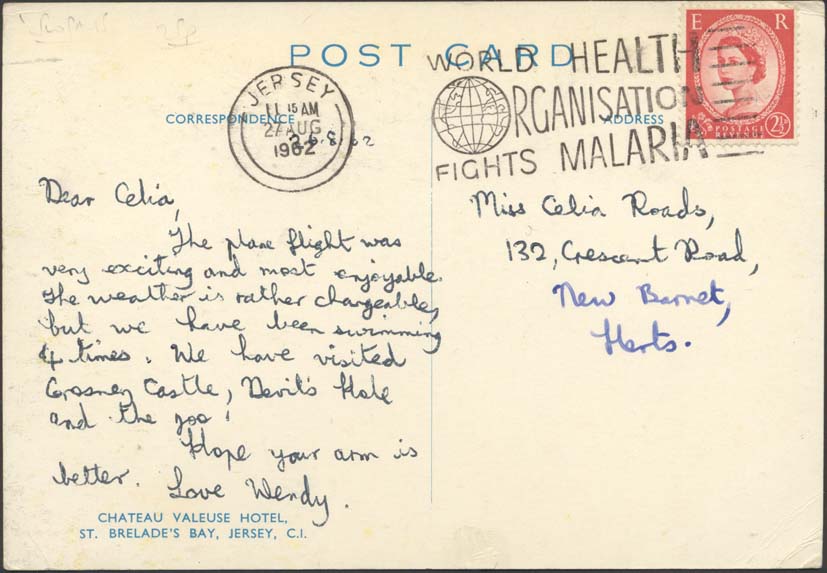 POST CARD
WORLD HEALTH
ORGANISATION
FIGHTS MALARIA
E R
POSTAGE
REVENUE
2½
JERSEY
11 15 AM
27 AUG
1962
26.8.62
CORRESPONDENCE
ADDRESS
Dear Celia,
The plane flight was
very exciting and most enjoyable.
The weather is rather changeable,
but we have been swimming
4 times. We have visited
Grosnez Castle, Devil's Hole
and the zoo!
Hope your arm is
better. Love Wendy.
CHATEAU VALEUSE HOTEL,
ST. BRELADE'S BAY, JERSEY, C.I.
Miss Celia Roads,
132, Crescent Road,
New Barnet,
Herts.